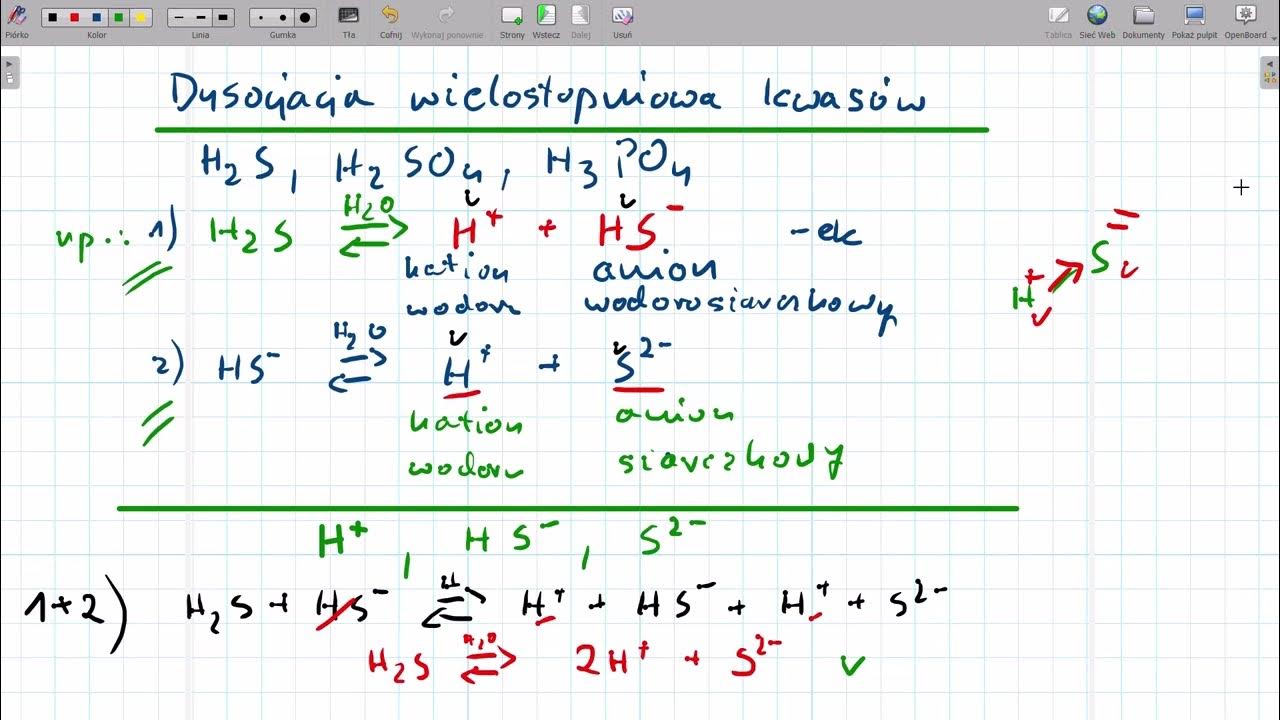 Piórko Kolor Linia Gumka Tła Cofnij Wykonaj ponownie Strony Wstecz Dalej Usuń Tablica Sieć Web Dokumenty Pokaż pulpit OpenBoard
Dysocjacja wielostopniowa kwasów
H₂S, H₂SO₄, H₃PO₄
np.: 1) H₂S ⇌ H⁺ + HS⁻ -ek
H₂O
kation anion
wodoru wodorosiarczkowy
H⁺ S =
2) HS⁻ ⇌ H⁺ + S²⁻
H₂O
kation anion
wodoru siarczkowy
H⁺, HS⁻, S²⁻
1+2) H₂S + HS⁻ ⇌ H⁺ + HS⁻ + H⁺ + S²⁻
H₂S ⇌ 2H⁺ + S²⁻
H₂O